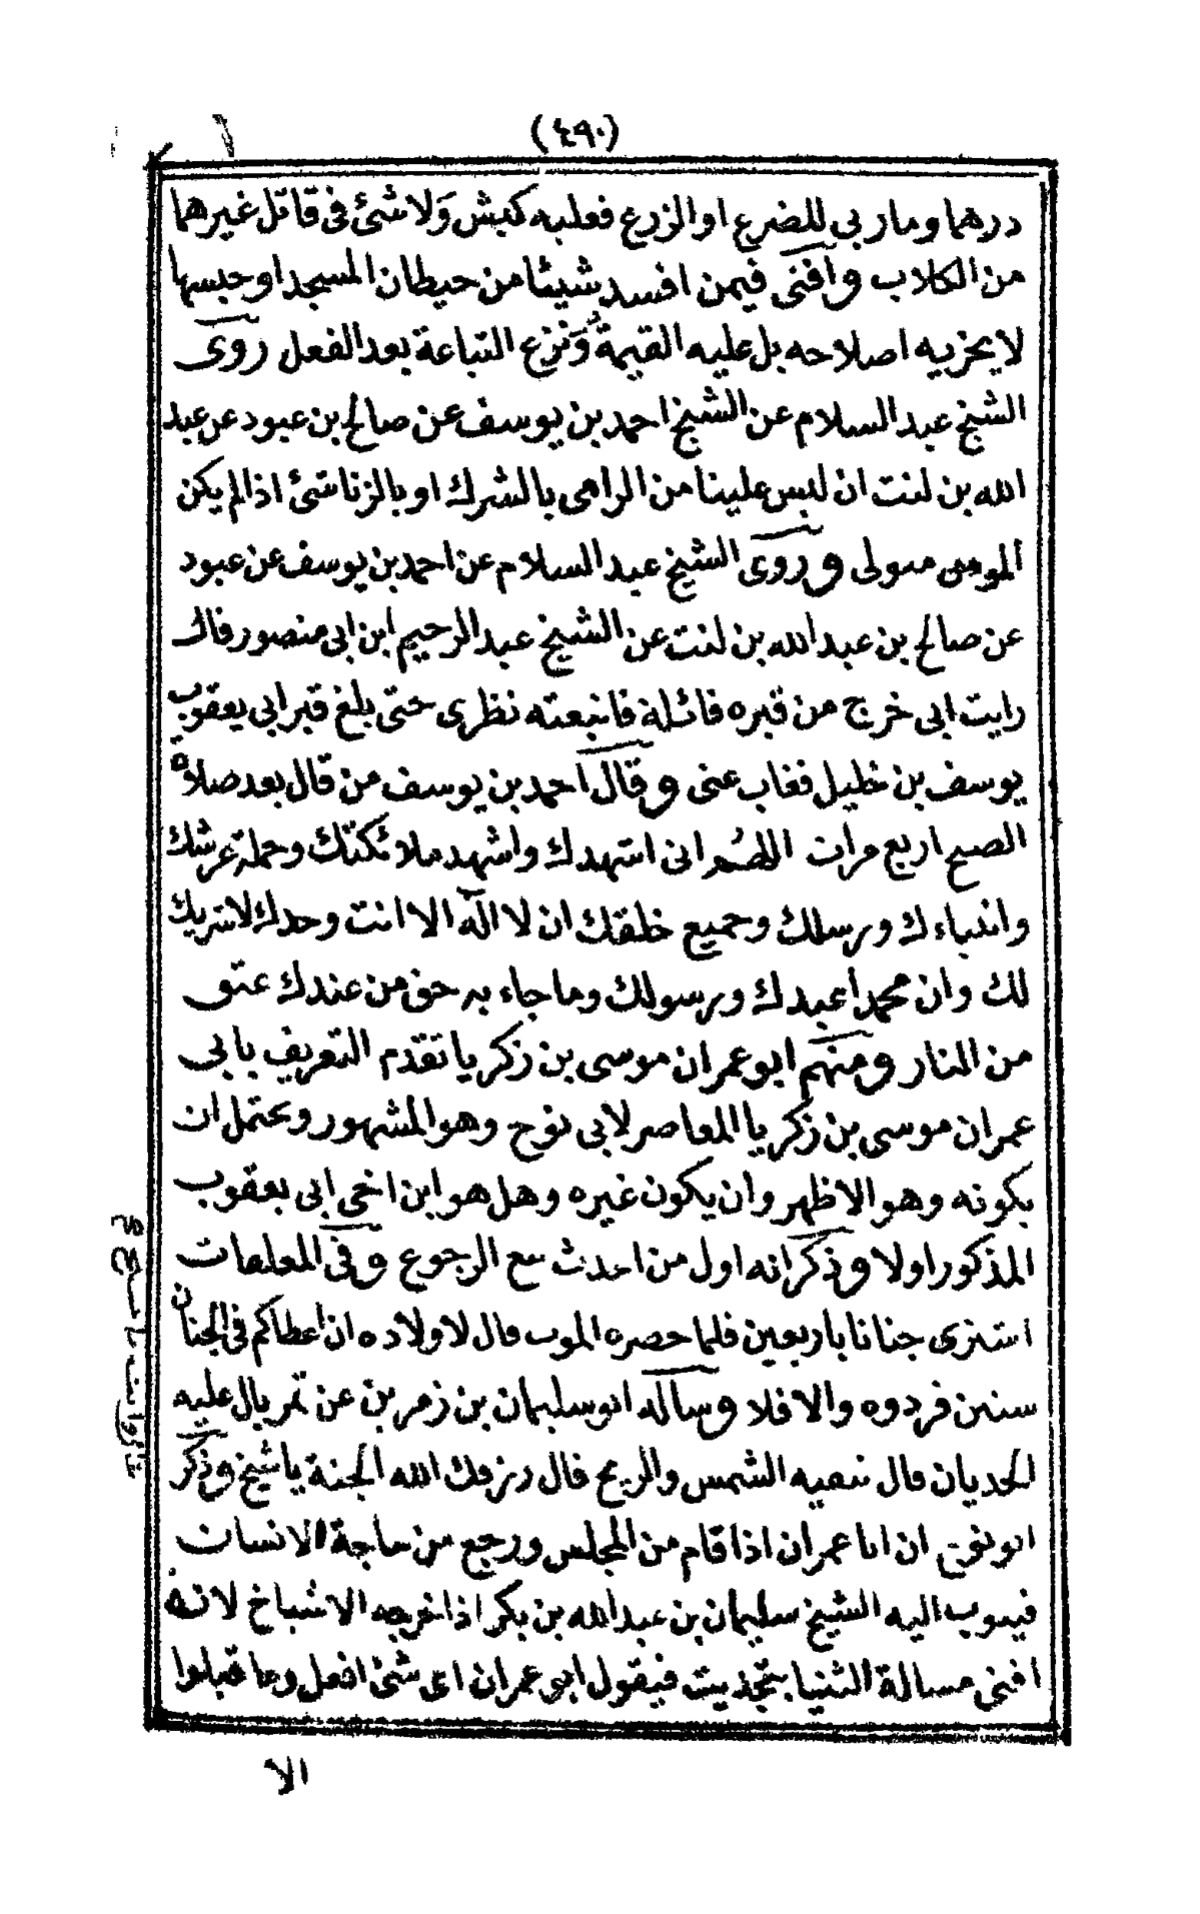 (٤٩٠)
درهما وما ربى للضرع او الزرع فعليه كبش ولا شئ فى قاتل غيرهما
من الكلاب وافتى فيمن افسد شيئا من حيطان المسجد او حبسها
لا يجزيه اصلاحه بل عليه القيمة ونزع التباعة بعد الفعل روى
الشيخ عبد السلام عن الشيخ احمد بن يوسف عن صالح بن عبود عن عبد
الله بن لنت ان ليس علينا من الرامى بالشرك او بالزنا شئ اذا لم يكن
المرمى متولى وروى الشيخ عبد السلام عن احمد بن يوسف عن عبود
عن صالح بن عبد الله بن لنت عن الشيخ عبد الرحيم ابن ابى منصور قال
رايت ابى خرج من قبره قائلة فاتبعته نظرى حتى بلغ قبر ابى يعقوب
يوسف بن خليل فغاب عنى وقال احمد بن يوسف من قال بعد صلاة
الصبح اربع مرات اللهم انى اشهدك واشهد ملائكتك وحملة عرشك
وانبياءك ورسلك وجميع خلقك ان لا اله الا انت وحدك لا شريك
لك وان محمدا عبدك ورسولك وما جاء به حق من عندك عتق
من النار ومنهم ابو عمران موسى بن زكريا تقدم التعريف بابى
عمران موسى بن زكريا المعاصر لابى نوح وهو المشهور ويحتمل ان
يكونه وهو الاظهر وان يكون غيره وهل هو ابن اخى ابى يعقوب
المذكور اولا وذكر انه اول من احدث بيع الرجوع وفى المعلقات
اشترى جنانا باربعين فلما حضره الموت قال لاولاده ان اعطاكم فى الجنان
ستين فردوه والا فلا وساله ابو سليمان بن زمرين عن تمر بال عليه
الجديان قال تنقيه الشمس والريح قال رزقك الله الجنة يا شيخ وذكر
ابو نوح ان ابا عمران اذا قام من المجلس ورجع من حاجة الانسان
فيتوب اليه الشيخ سليمان بن عبد الله بن بكر اذا خرجه الاشياخ لانه
افتى مسالة الثنيا بتجديت فيقول ابو عمران اى شئ افعل وما قبلوا
الا